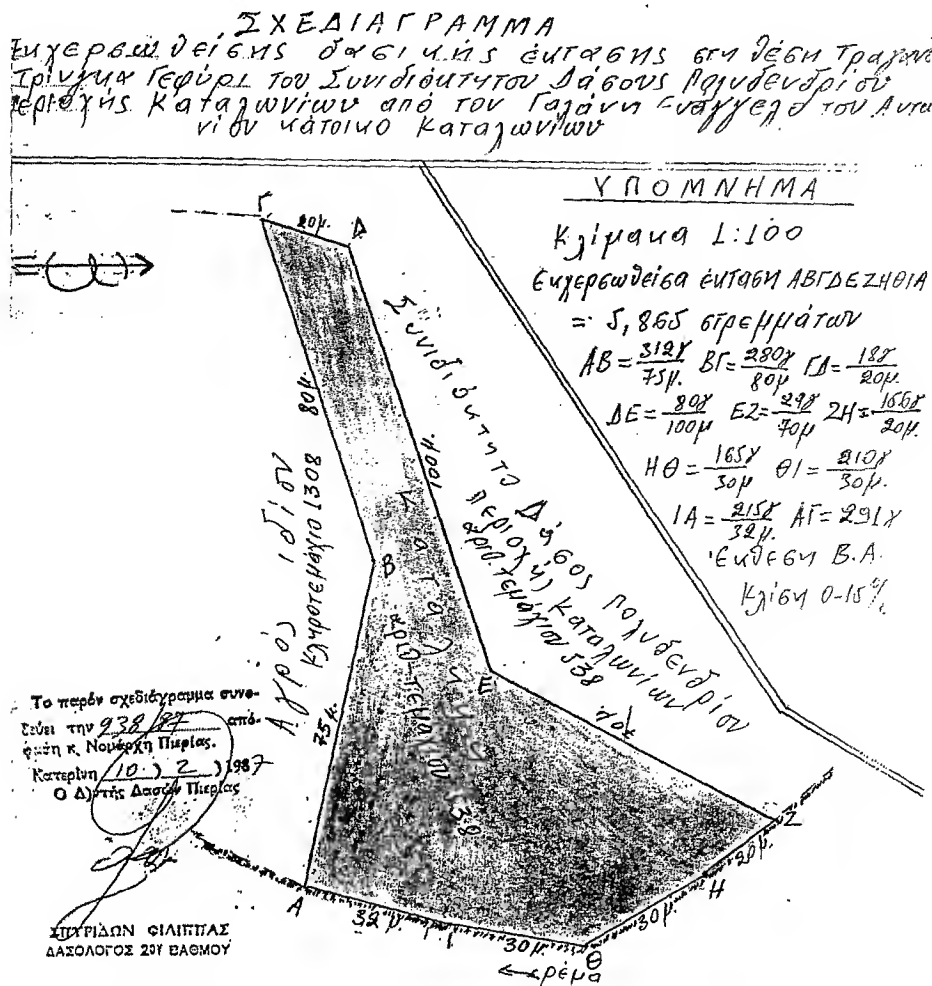 ΣΧΕΔΙΑΓΡΑΜΜΑ
Εκχερσωθείσης δασικής έκτασης στη θέση Τραγάνα
Τρίνγκα Γεφύρι του Συνιδιόκτητου Δάσους Πολυδενδρίου
περιοχής Καταλωνίων από τον Γαλάνη Ευάγγελο του Αντω
νίου κάτοικο Καταλωνίων
ΥΠΟΜΝΗΜΑ
Κλίμακα 1:100
Εκχερσωθείσα έκταση ΑΒΓΔΕΖΗΘΙΑ
= 5,865 στρεμμάτων
ΑΒ = 312γ/75μ. ΒΓ = 280γ/80μ ΓΔ = 18γ/20μ.
ΔΕ = 80γ/100μ ΕΖ = 29γ/70μ ΖΗ = 166γ/20μ.
ΗΘ = 165γ/30μ ΘΙ = 210γ/30μ.
ΙΑ = 215γ/32μ. ΑΓ = 291γ
Έκθεση Β.Α.
Κλίση 0-15%
Γ
20μ.
Δ
80μ.
100μ.
Αγρός ιδίου
Κληροτεμάχιο 1308
Συνιδιόκτητο Δάσος Πολυδενδρίου
περιοχής Καταλωνίων
αριθ. τεμαχίου 538
Β
Ε
75μ.
70μ
Ζ
20μ.
Η
30μ.
Θ
30μ.
Ι
32μ.
Α
ρέμα
Το παρόν σχεδιάγραμμα συνο-
δεύει την 938/87 από-
φαση κ. Νομάρχη Πιερίας.
Κατερίνη 10 / 2 / 1987
Ο Δ/ντής Δασών Πιερίας
ΣΠΥΡΙΔΩΝ ΦΙΛΙΠΠΑΣ
ΔΑΣΟΛΟΓΟΣ 2ου ΒΑΘΜΟΥ